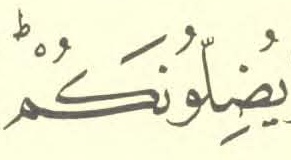 يُضِلُّونَكُمْ ؕ